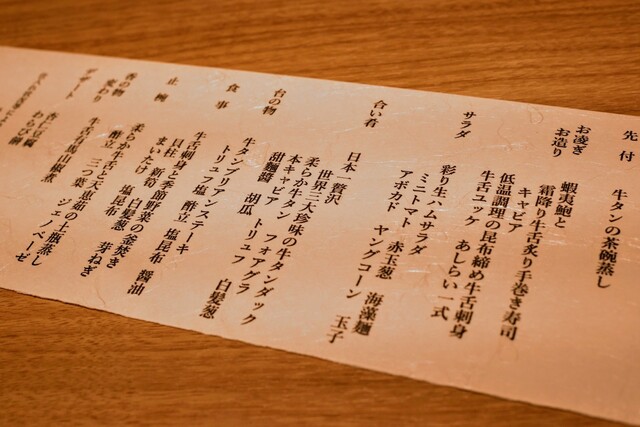 先付
牛タンの茶碗蒸し
お凌ぎ
お造り
蝦夷鮑と
霜降り牛舌炙り手巻き寿司
キャビア
低温調理の昆布締め牛舌刺身
牛舌ユッケ あしらい一式
サラダ
彩り生ハムサラダ
ミニトマト 赤玉葱 海藻麺
アボカド ヤングコーン 玉子
合い肴
日本一贅沢
世界三大珍味の牛タンダック
柔らか牛タン フォアグラ
本キャビア トリュフ
甜麺醤 胡瓜 白髪葱
台の物
牛タンブリアンステーキ
トリュフ塩 酢立 塩昆布 醤油
食事
牛舌刺身と季節野菜の釜焚き
貝柱 塩昆布
まいたけ 新筍 白髪葱 芽ねぎ
止椀
柔らか牛舌と天恵菇の土瓶蒸し
酢立 三つ葉 ジェノベーゼ
香の物
変わり
牛舌有馬山椒煮
デザート
杏仁豆腐
わらび餅